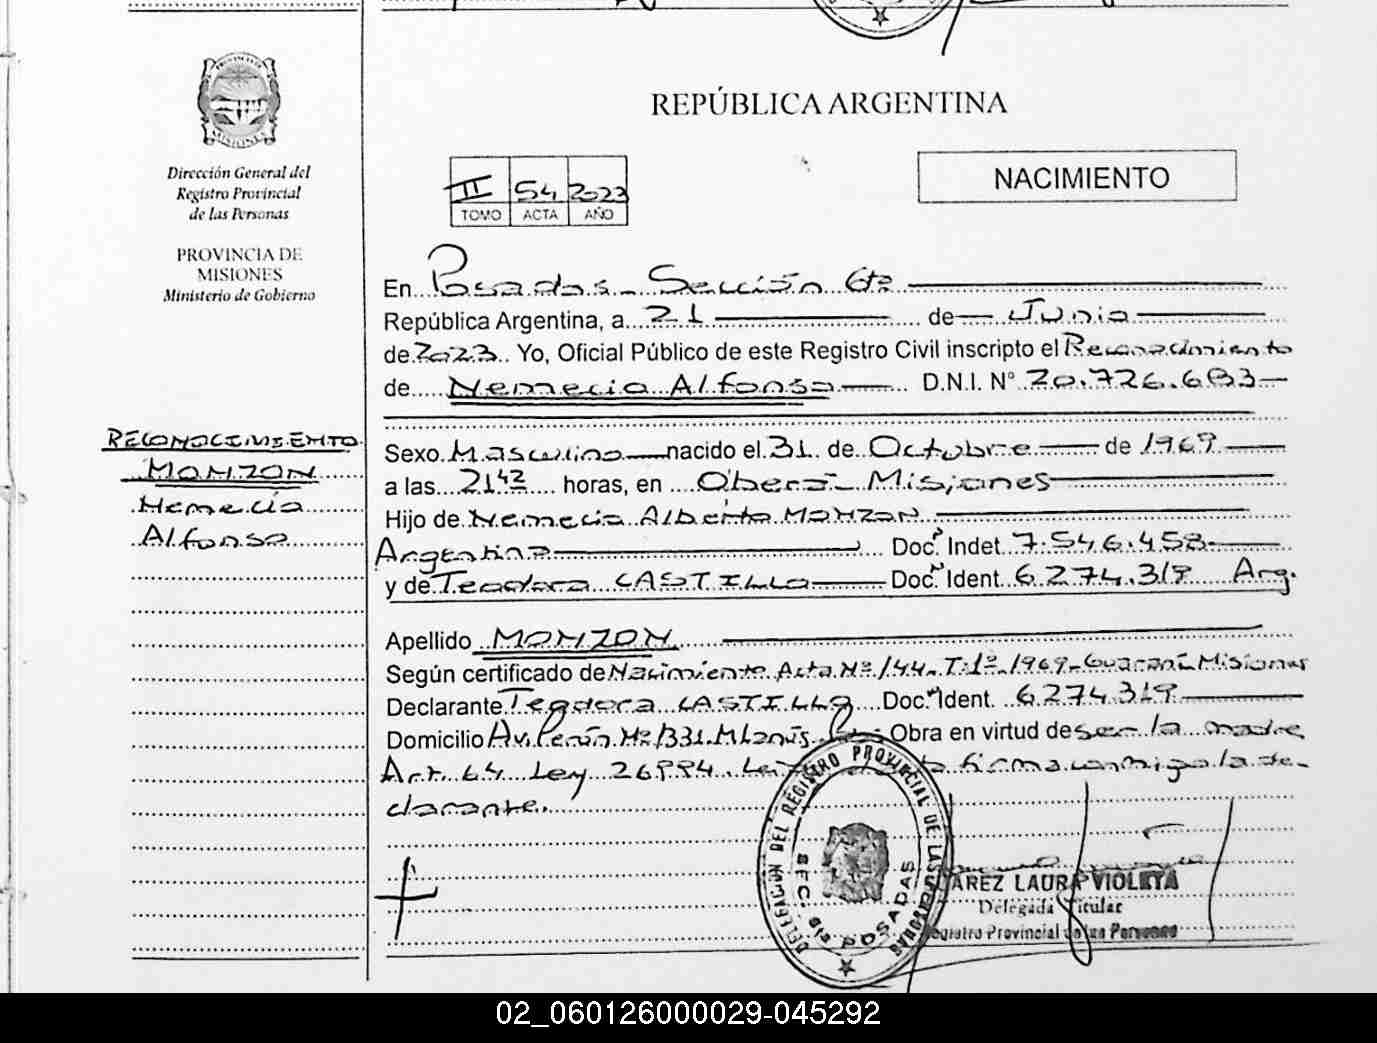 PROVINCIA DE
MISIONES
Dirección General del
Registro Provincial
de las Personas
PROVINCIA DE
MISIONES
Ministerio de Gobierno
RECONOCIMIENTO
MONZON
Nemecio
Alfonso
REPÚBLICA ARGENTINA
II 54 2023
TOMO ACTA AÑO
NACIMIENTO
En Posadas - Sección 6ta
República Argentina, a 21 de Junio
de 2023 Yo, Oficial Público de este Registro Civil inscripto el Reconocimiento
de Nemecio Alfonso D.N.I. N° 20.726.683
Sexo Masculino nacido el 31 de Octubre de 1969
a las 21 42 horas, en Oberá - Misiones
Hijo de Nemecio Alberto MONZON
Argentino Doc. Indet. 7.546.458
y de Teodora CASTILLO Doc. Ident. 6.274.319 Arg.
Apellido MONZON
Según certificado de Nacimiento Acta Nº 144 - T: 1º - 1969 - Guaraní - Misiones
Declarante Teodora CASTILLO Doc. Ident. 6.274.319
Domicilio Av. Perón Nº 1331. M. Lanús. Obra en virtud de ser la madre
Art. 64 Ley 26994 firma conmigo la de-
clarante.
DELEGACION DEL REGISTRO PROVINCIAL DE LAS PERSONAS
SEC. 6ta POSADAS
AREZ LAURA VIOLETA
Delegada Titular
egistro Provincial de las Personas
02_060126000029-045292